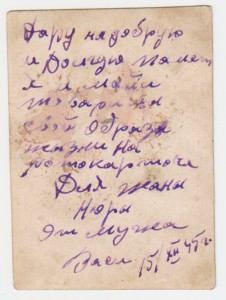 Дару на добрую
и Долгую памет
я и мой
свой образ
жизни на
фотокарточе
Для жаны
Нюры
От мужа
Васи 15/XII 45 г.